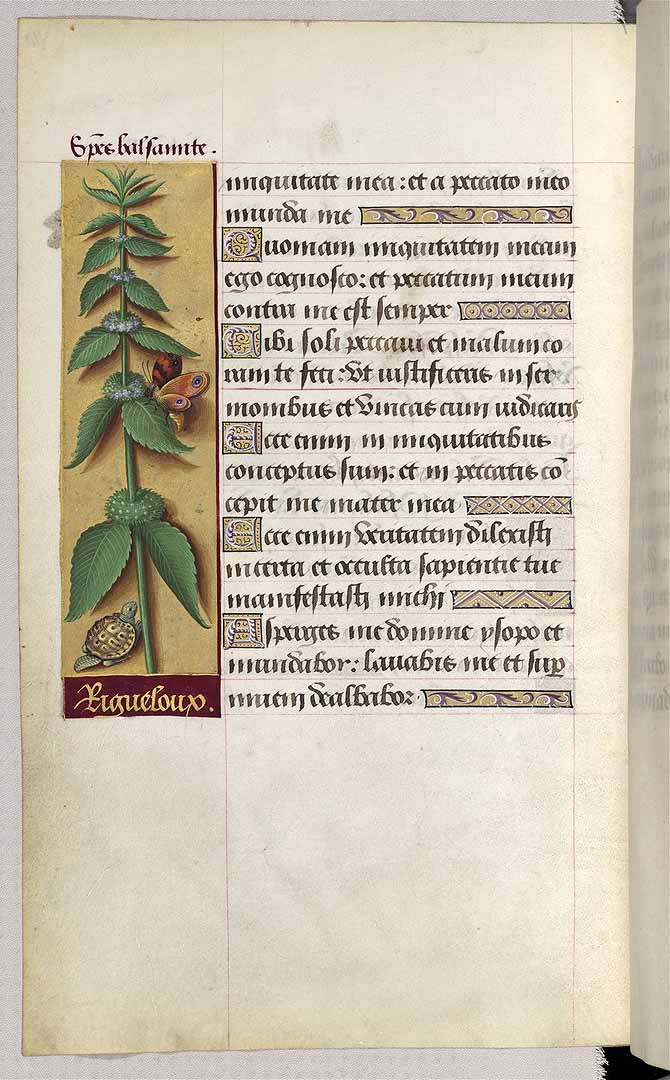 Spēs balsamite.
iniquitate mea: et a peccato meo
munda me
Quoniam iniquitatem meam
ego cognosco: et peccatum meum
contra me est semper
Tibi soli peccavi et malum co
ram te feci: Vt iustificeris in ser
monibus et Vincas cum iudicaris
Ecce enim in iniquitatibus
conceptus sum: et in peccatis cō
cepit me mater mea
Ecce enim Veritatem dilexisti
incerta et occulta sapientie tue
manifestasti michi
Asperges me domine ysopo et
mundabor: lauabis me et sup̄
niuem dealbabor
Rigueloup.